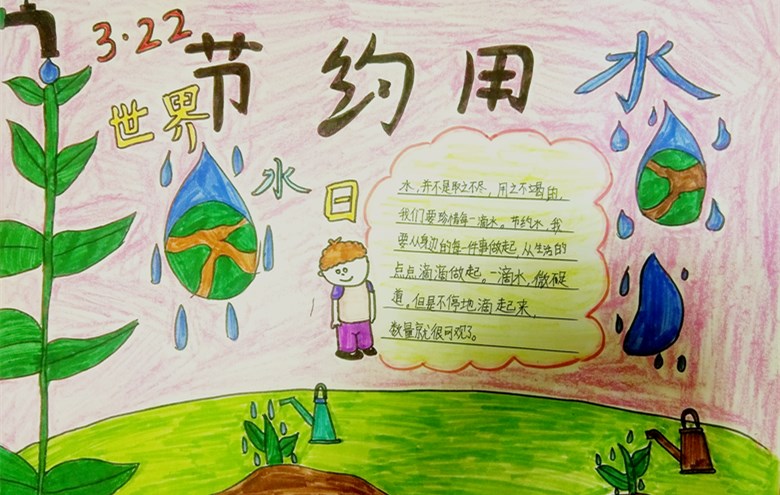 3.22
节约用水
世界
水
日
水，并不是取之不尽，用之不竭的，
我们要珍惜每一滴水。节约水，我
要从身边的每一件事做起，从生活的
点点滴滴做起。一滴水，微不足
道。但是不停地滴起来，
数量就很可观了。